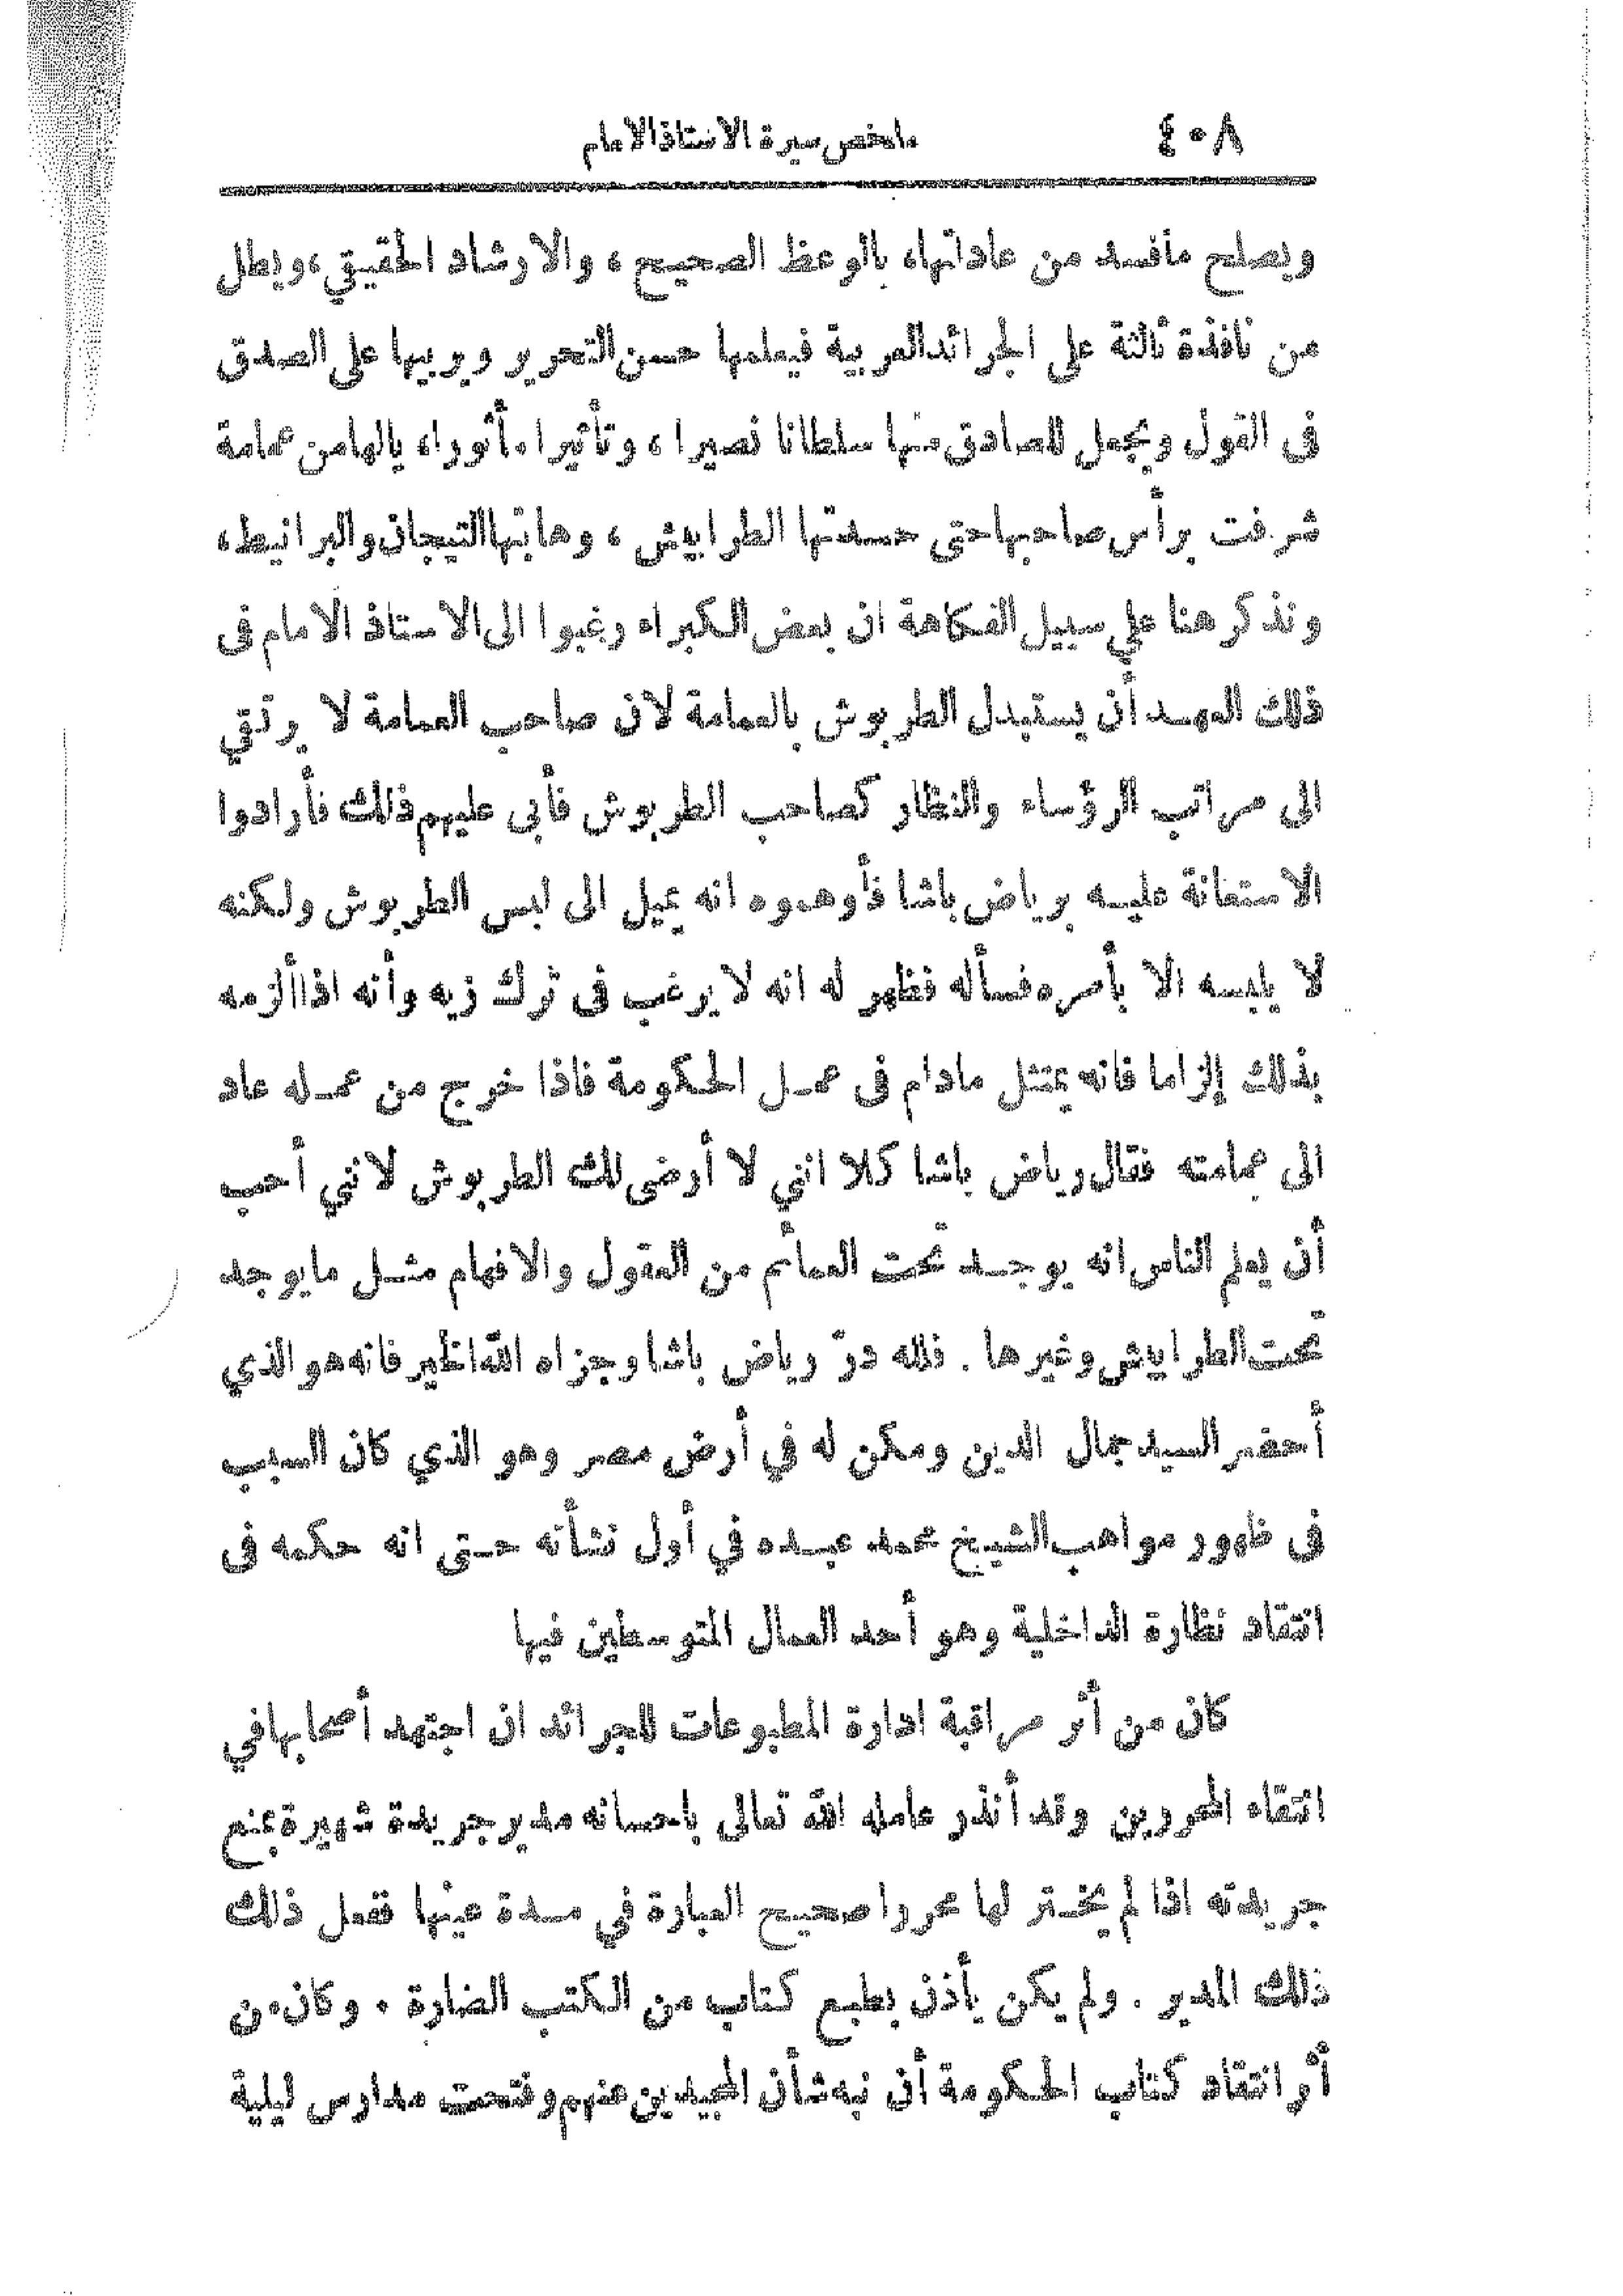 ٤٠٨ ملخص سيرة الاستاذ الامام
ويصلح مافسد من عاداتها، بالوعظ الصحيح، والارشاد الحقيقي، ويطل
من نافذة ثالثة على الجرائد العربية فيعلمها حسن التحرير ويربيها على الصدق
فى القول ويجعل للصادق منها سلطانا نصيرا، وتأثيرا مأثورا، يالها من عمامة
شرفت برأس صاحبها حتى حسدتها الطرابيش، وهابتها التيجان والبرانيط،
ونذكر هنا على سبيل الفكاهة ان بعض الكبراء رغبوا الى الاستاذ الامام فى
ذلك العهد أن يستبدل الطربوش بالعمامة لان صاحب العمامة لا يرتقي
الى مراتب الرؤساء والنظار كصاحب الطربوش فأبى عليهم ذلك فأرادوا
الاستعانة عليه برياض باشا فأوهموه انه يميل الى لبس الطربوش ولكنه
لا يلبسه الا بأمره فسأله فظهر له انه لا يرغب فى ترك زيه وأنه اذا ألزمه
بذلك إلزاما فانه يمتثل مادام فى عمل الحكومة فاذا خرج من عمله عاد
الى عمامته فقال رياض باشا كلا انني لا أرضى لك الطربوش لانني أحب
أن يعلم الناس انه يوجد تحت العمائم من العقول والافهام مثل مايوجد
تحت الطرابيش وغيرها . فلله درّ رياض باشا وجزاه الله الخير فانه هو الذي
أحضر السيد جمال الدين ومكن له في أرض مصر وهو الذي كان السبب
فى ظهور مواهب الشيخ محمد عبده في أول نشأته حتى انه حكمه فى
انتقاد نظارة الداخلية وهو أحد العمال المتوسطين فيها
كان من أثر مراقبة ادارة المطبوعات للجرائد ان اجتهد أصحابها في
انتقاء المحررين وقد أنذر عامله الله تعالى باحسانه مدير جريدة شهيرة بمنع
جريدته اذا لم يختر لها محررا صحيح العبارة في مدة عينها ففعل ذلك
ذلك المدير . ولم يكن يأذن بطبع كتاب من الكتب الضارة . وكان من
أثر انتقاد كتاب الحكومة أن نبه شأن المجيدين منهم وفتحت مدارس ليلية